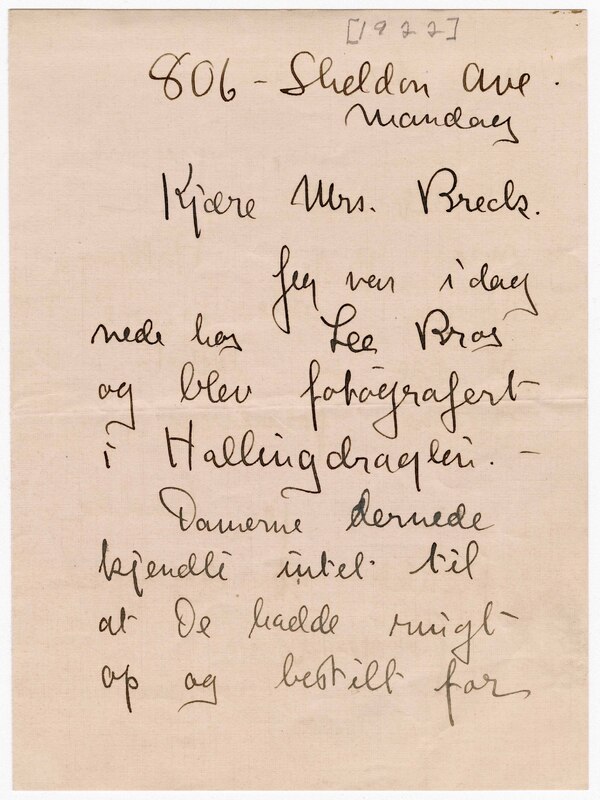 [1922]
806 - Sheldon Ave.
Mandag
Kjære Mrs. Breck.
Jeg var i dag
nede hos Lee Bros
og blev fotografert
i Hallingdragten. -
Damerne dernede
kjendte intet til
at De hadde ringt
op og bestilt for